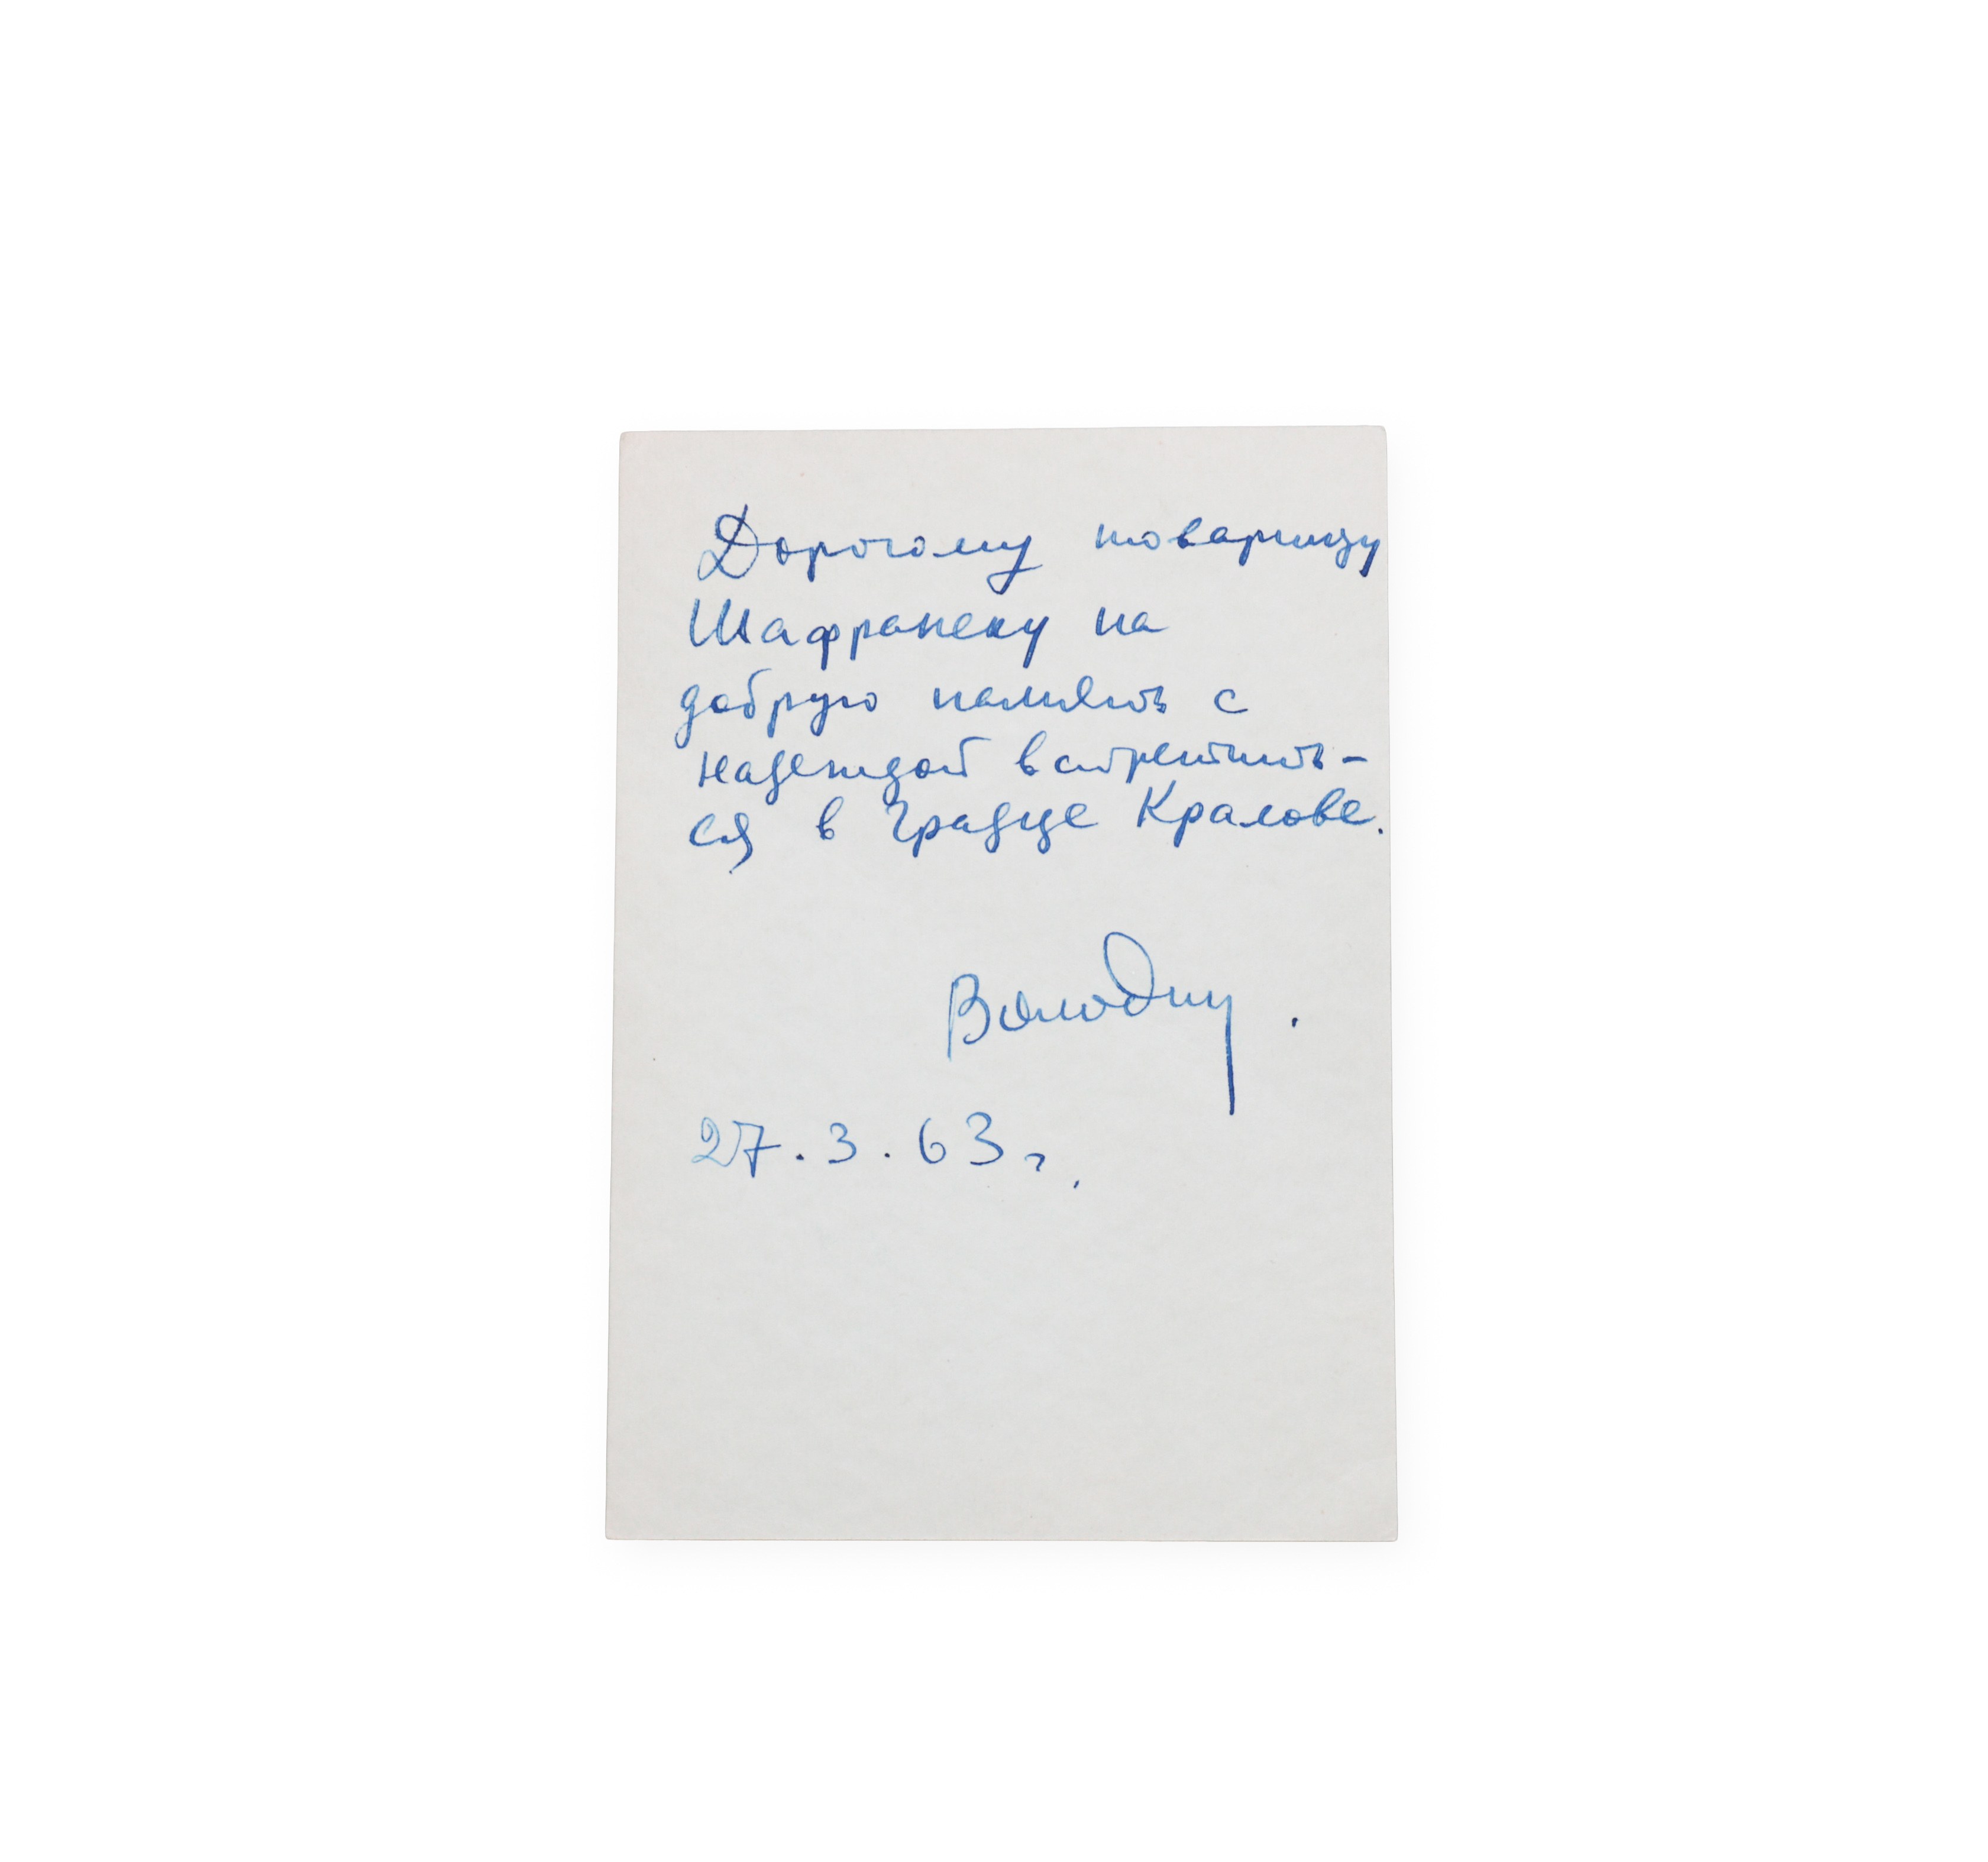 Дорогому товарищу
Шафранеку на
добрую память с
надеждой встретить-
ся в Градце Кралове.
Володин.
27.3.63 г.